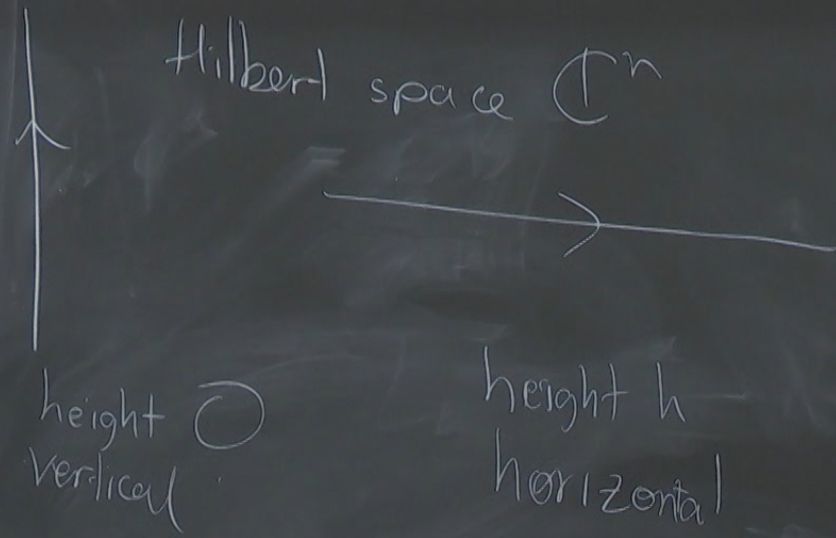 Hilbert space ℂⁿ
height 0
vertical
height h
horizontal